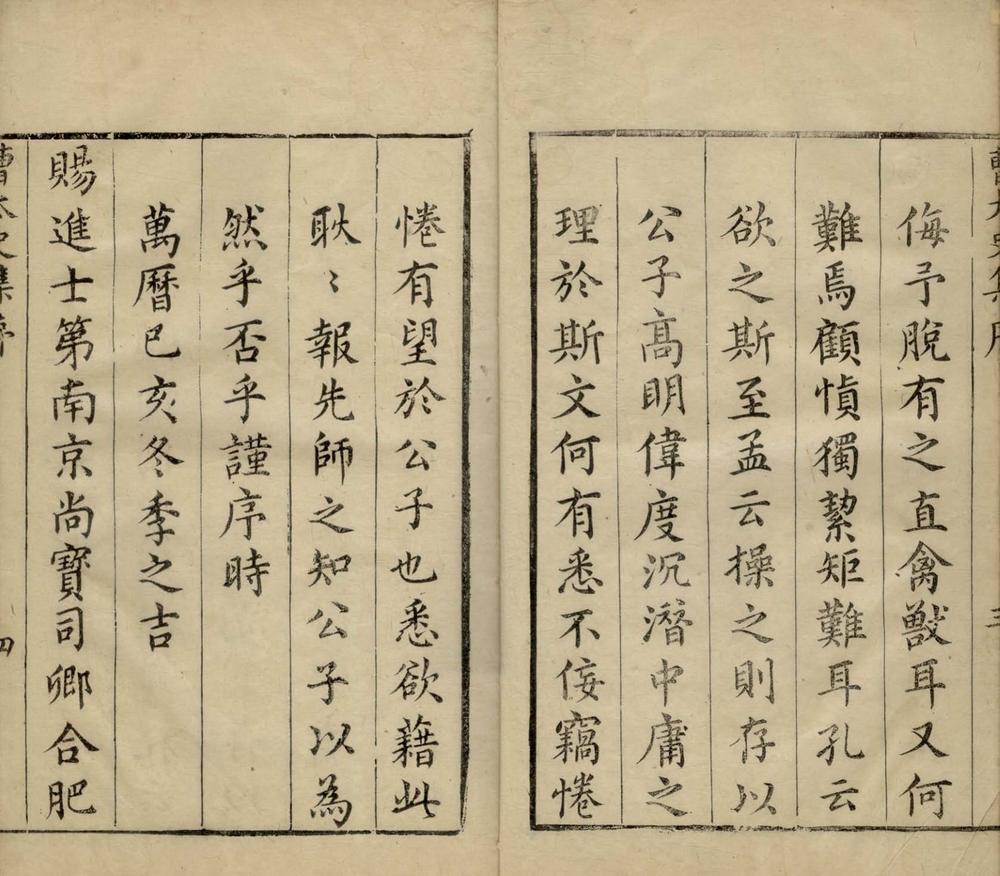 侮予脫有之直禽獸耳又何
難焉顧慎獨絜矩難耳孔云
欲之斯至孟云操之則存以
公子高明偉度沉潛中庸之
理於斯文何有悉不佞竊惓
惓有望於公子也悉欲藉此
耿〻報先師之知公子以為
然乎否乎謹序時
萬曆巳亥冬季之吉
賜進士第南京尚寶司卿合肥
曹太史集序
四